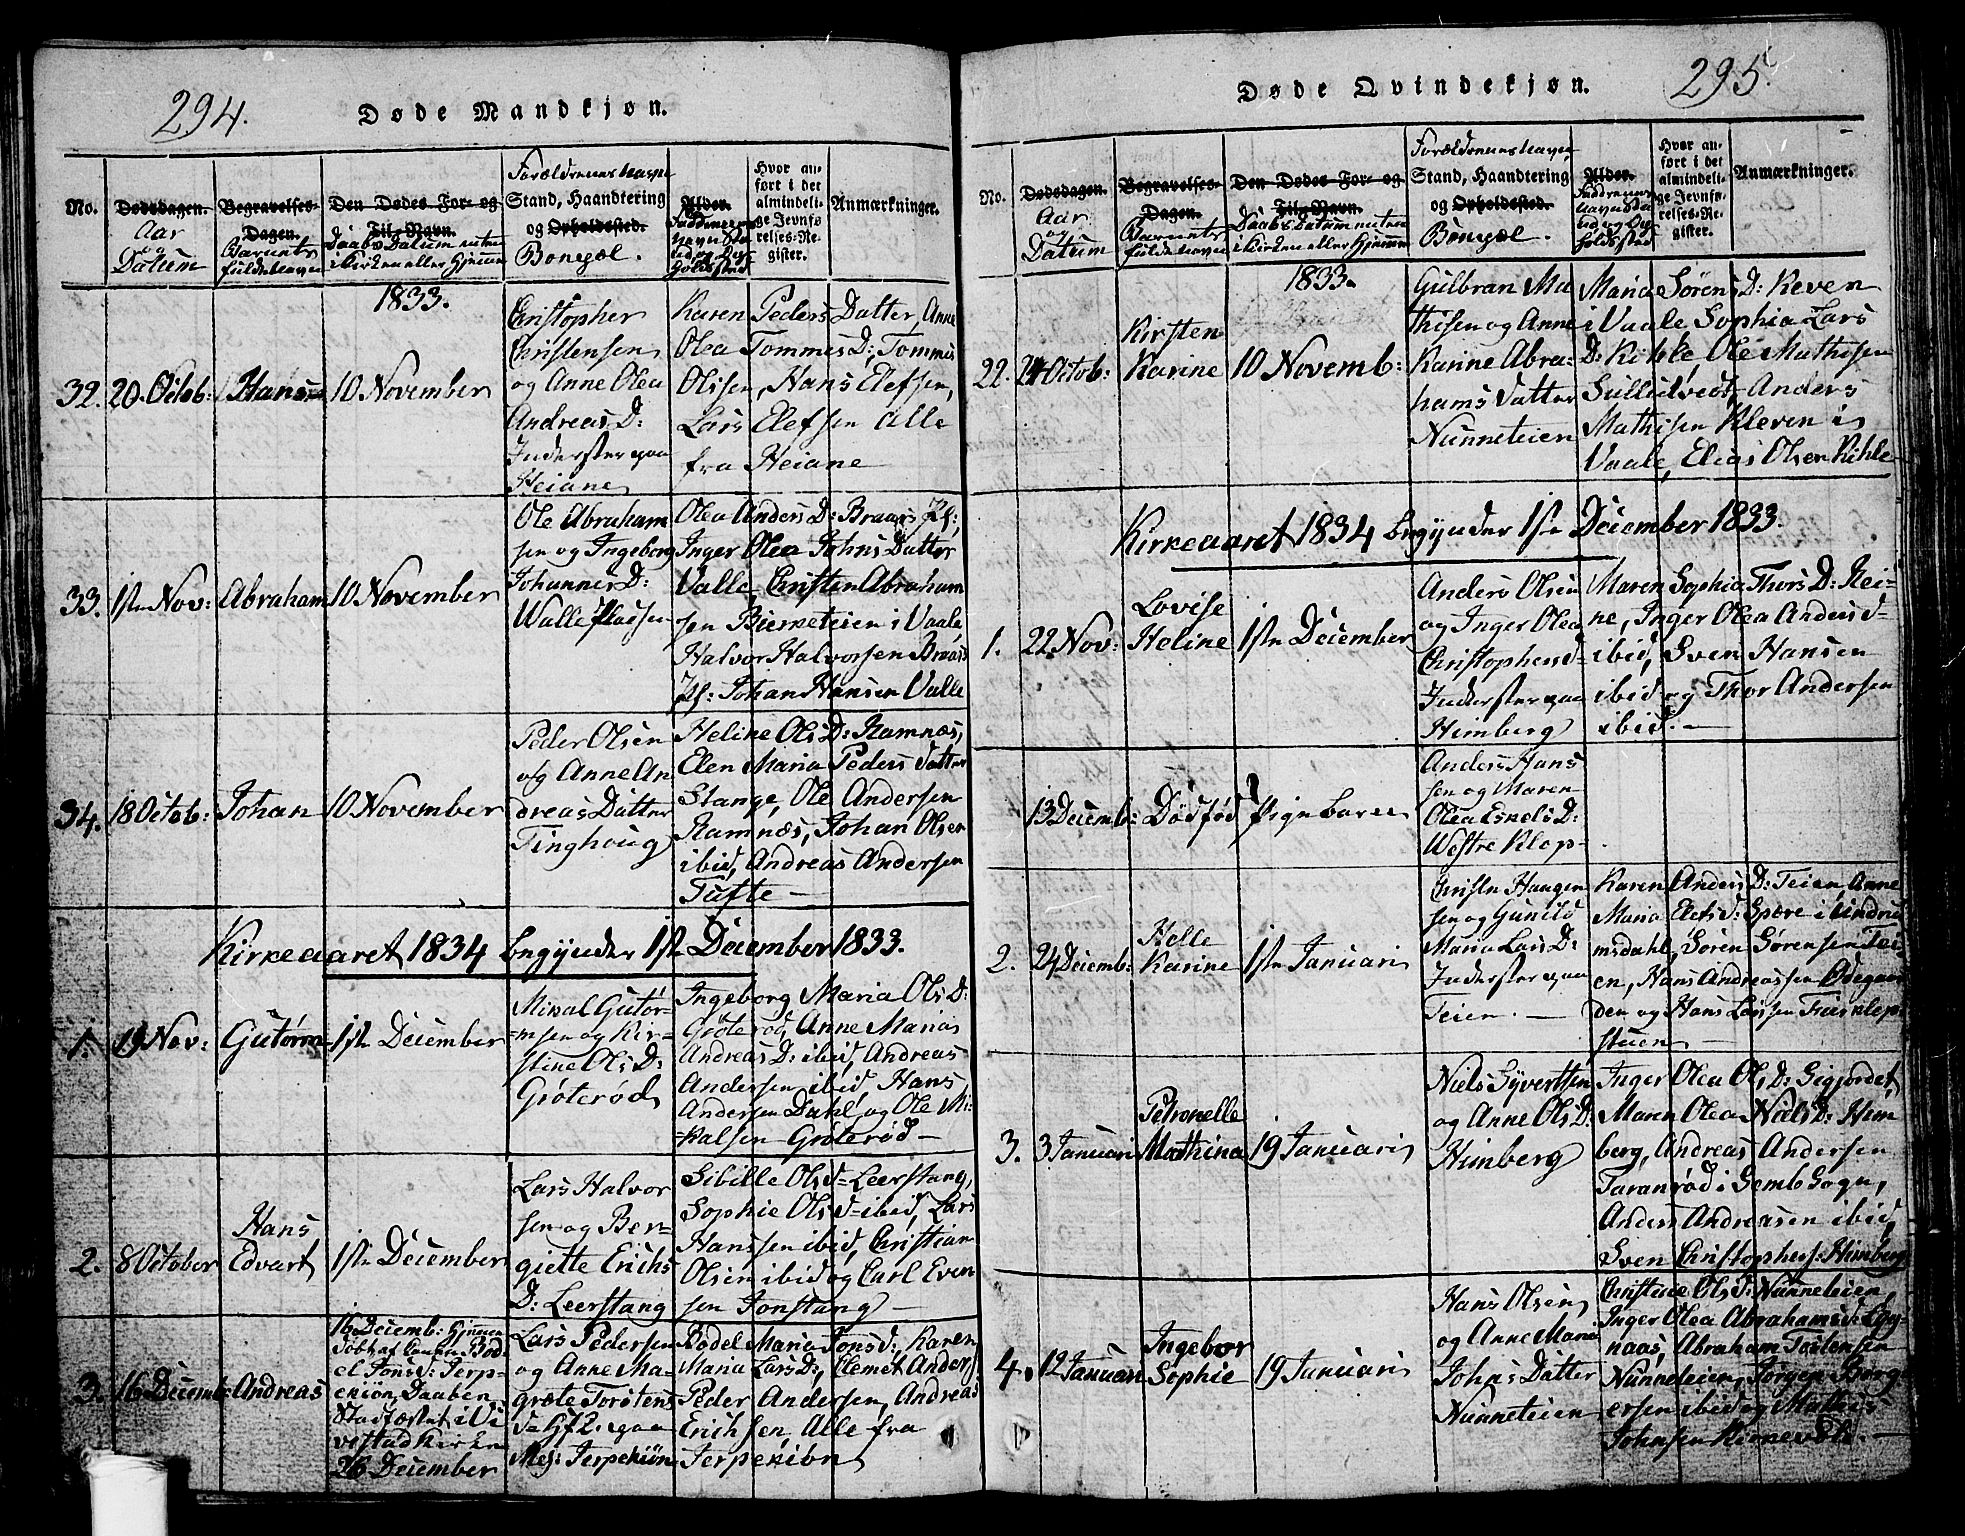 294.
Døde Mandkjøn.
No.
Dødsdagen.
Aar
og
Datum
Begravelses-
Dagen.
Barnets
fulde Navn
Den Dødes For- og
Til-Navn.
Daabs Datum enten
i Kirken eller Hjemme
Forældrenes Navne
Stand, Haandtering
og Opholdssted.
Bopæl.
Alder.
Fadderenes
Navn Stand
og Op-
holdssted
Hvor an-
ført i det
almindeli-
ge Jevnfø-
relses-Re-
gister.
Anmærkninger.
1833.
32.
20. Octob:
Hans
10 November
Christopher
Christensen
og Anne Olea
Andreas D:
Inderster paa
Heiane
Karen Peders Datter, Anne
Olea Tommes D:, Tommes
Olssen, Hans Elefsen,
Lars Elefsen Alle
fra Heiane
33.
1ste Nov:
Abraham
10 November
Ole Abraham
sen og Ingeborg
Johannes D:
Walle Pladsen
Olea Anders D: Braars Pl:,
Inger Olea Johns Datter
Valle, Christen Abraham
sen Bierketeien i Vaale
Halvor Halvorsen Braars
Pl: Johan Hansen Valle
34.
18 Octob:
Johan
10 November
Peder Olsen
og Anne An
dreas Datter
Tinghoug
Heline Ols D: Ramnæs,
Elen Maria Peders Datter
Stange, Ole Andersen
Ramnæs, Johan Olsen
ibid, Andreas Andersen
Tufte —
Kirkeaaret 1834 begynder 1ste December 1833.
1.
19 Nov:
Gutorm
1ste December
Mikal Gutor-
msen og Kir-
stine Ols D:
Grøterød
Ingeborg Maria Ols D:
Grøterød, Anne Maria
Andreas D: ibid, Andreas
Andersen ibid, Hans
Andersen Dahl og Ole Mi-
kalsen Grøterød —
2.
8 October
Hans
Edvart
1ste December
Lars Halvor
sen og Ber-
giette Erichs
D: Leerstang
Sibille Ols d: Leerstang,
Sophie Ols d: ibid, Lars
Hanssen ibid, Christian
Olsen ibid og Carl Even
sen Jonstang —
3.
16 Decemb:
Andreas
16 Decemb: Hjemme
døbt af Conen Bod-
el Jons d: Jerp-
ekion, Daaben
Stadfæstet i Vi
vestad Kirke
26 December
Lars Pedersen
og Anne Ma-
grete Torstens
d: paa
Jerpekiøn
Bodel Maria Jons d:, Karen
Maria Lars D:, Clemet Anders
Peder Andersen, Andreas
Erichsen, Alle fra
Jerpekiøn
295.
Døde Qvindekjøn.
No.
Dødsdagen.
Aar
og
Datum
Begravelses-
Dagen.
Barnets
fulde Navn
Den Dødes For- og
Til-Navn.
Daabs Datum enten
i Kirken eller Hjemme
Forældrenes Navne
Stand, Haandtering
og Opholdssted.
Bopæl.
Alder.
Faddrenes
Navn Sta
nd og Op-
holdssted
Hvor an-
ført i det
almindeli-
ge Jevnfø-
relses-Re-
gister.
Anmærkninger.
1833.
22.
24 Octob:
Kirsten
Karine
10 Novemb:
Gulbran Ma
thisen og Anne
Karine Abra-
hams Datter
Nunneteien
Maria Sørens D: Keven
i Vaale, Sophia Lars
D: Kihle, Ole Mathisen
Sulludvedt, Anders
Mathisen Kleven i
Vaale, Elias Olsen Kihle
Kirkeaaret 1834 begynder 1ste December 1833.
1.
22 Nov:
Lovise
Heline
1ste December
Anders Olsen
og Inger Olea
Christophers d-
Inderster paa
Himberg
Maren Sophia Thors D: Rei-
ne, Inger Olea Anders d-
ibid, Sven Hansen
ibid og Thor Andersen
ibid. —
13 Decemb:
Dødfød Pigebarn
Anders Hans
sen og Maren
Olea Eskels D:
Westre Klop-
2.
24 Decemb:
Helle
Karine
1ste Januari
Christen Haagen
sen og Gunild
Maria Lars D:
Inderster paa
Teien. —
Karen Anders D: Teien, Anne
Maria Elets d: Spere i Undru
msdahl, Søren Sørensen Tei-
en, Hans Andreassen Ødegaar
den og Hans Larsen
stuen —
3.
3 Januari
Petronelle
Mathina
19 Januari
Niels Syvertsen
og Anne Ols D:
Himberg
Inger Olea Ols D: Gigjordet,
Maren Olea Niels D: Him
berg, Andreas Andersen
Taranrød i Semb Sogn,
Anders Andreasen ibid,
Sven Christophers: Himberg
4.
12 Januari
Ingebor
Sophie
19 Januari
Hans Olsen
og Anne Maria
Johns Datter
Nunneteien
Christine Ols d: Nunneteien
Inger Olea Abrahams d: Lyng-
naas, Abraham Tostensen
Nunneteien, Jørgen Børg-
ersen ibid og Mathis
Johnsen